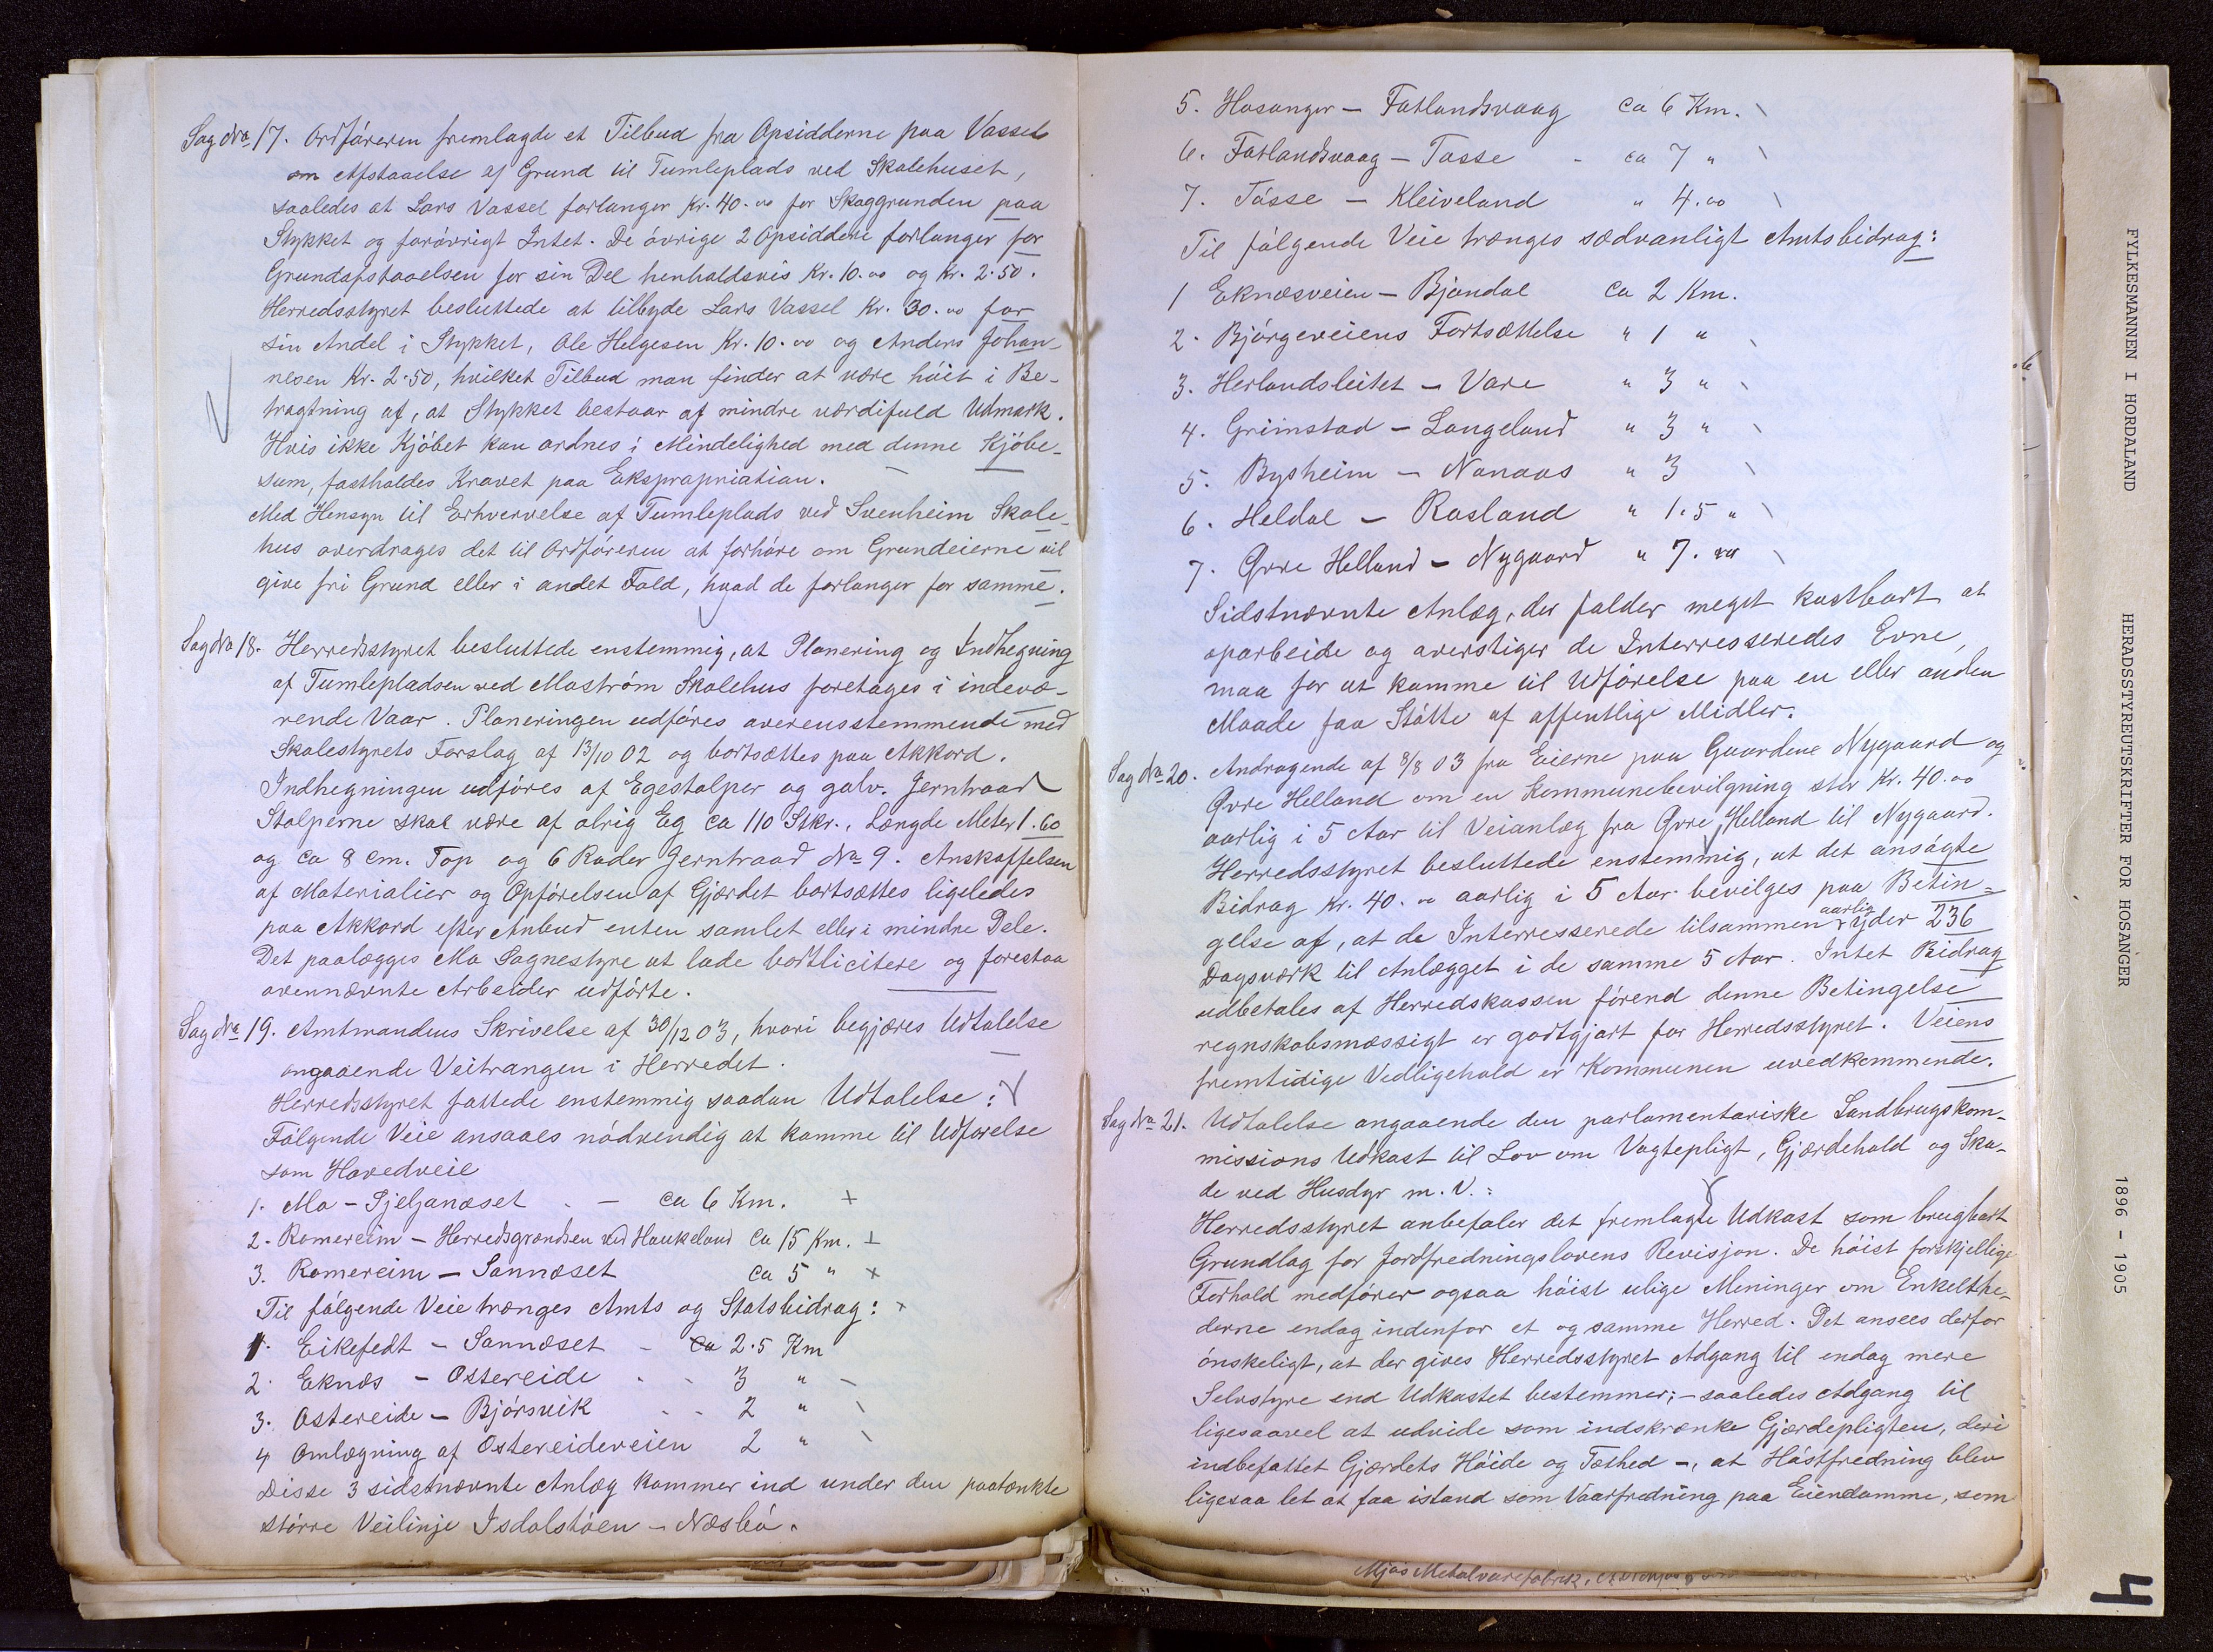 Sag No 17. Ordføreren fremlagde et Tilbud fra Opsidderne paa Vassel
om Afstaaelse af Grund til Tumleplads ved Skolehuset,
saaledes at Lars Vassel forlanger Kr. 40.00 for Skoggrunden paa
Stykket og forøvrigt Intet. De øvrige 2 Opsiddere forlanger for
Grundafstaaelsen for sin Del henholdsvis Kr. 10.00 og Kr. 2.50.
Herredsstyret besluttede at tilbyde Lars Vassel Kr. 30.00 for
sin Andel i Stykket, Ole Helgesen Kr. 10.00 og Anders Johan-
nesen Kr. 2.50, hvilket Tilbud man finder at være høit i Be-
tragtning af, at Stykket bestaar af mindre værdifuld Udmark.
Hvis ikke Kjøbet kan ordnes i Mindelighed med denne Kjøbe-
sum, fastholdes Kravet paa Ekspropriation.
Med Hensyn til Erhvervelse af Tumleplads ved Svenheim Skole-
hus overdrages det til Ordføreren at forhøre om Grundeierne vil
give fri Grund eller i andet Fald, hvad de forlanger for samme.
Sag No 18. Herredsstyret besluttede enstemmig, at Planering og Indhegning
af Tumlepladsen ved Mostrøm Skolehus foretages i indevæ-
rende Vaar. Planeringen udføres overensstemmende med
Skolestyrets Forslag af 13/10 02 og bortsættes paa Akkord.
Indhegningen udføres af Egestolper og galv. Jerntraad
Stolperne skal være af olrig Eg ca 110 Stkr., Længde Meter 1.60
og ca 8 cm. Top og 6 Rader Jerntraad No 9. Anskaffelsen
af Materialier og Opførelsen af Gjærdet bortsættes ligeledes
paa Akkord efter Anbud enten samlet eller i mindre Dele.
Det paalægges Mo Sognestyre at lade bortlicitere og forestaa
ovennævnte Arbeider udførte.
Sag No 19. Amtmandens Skrivelse af 30/12 03, hvori begjæres Udtalelse
angaaende Veitrangen i Herredet.
Herredsstyret fattede enstemmig saadan Udtalelse:
Følgende Veie ansaaes nødvendig at komme til Udførelse
som Hovedveie
1. Mo - Tjeljanæset - ca 6 Km. +
2. Romereim - Herredsgrændsen ved Haukeland ca 15 Km. +
3. Romereim - Sannæset ca 5 " +
Til følgende Veie trænges Amts og Statsbidrag: +
1. Eikefedt - Sannæset - ca 2.5 Km
2. Eknæs - Ostereide 3 "
3. Ostereide - Bjørsvik 2 "
4 Omlægning af Ostereideveien 2 "
Disse 3 sidstnævnte Anlæg kommer ind under den paatænkte
større Veilinje Isdalstøen - Næsbø.
5. Hosanger - Fotlandsvaag ca 6 Km.
6. Fotlandsvaag - Tosse - ca 7 "
7. Tøsse - Kleiveland " 4.00
Til følgende Veie trænges sædvanligt Amtsbidrag:
1 Eknæsveien - Bjøndal ca 2 Km.
2. Bjørgeveiens Fortsættelse " 1 "
3. Herlandsleitet - Vare " 3 "
4. Grimstad - Langeland " 3 "
5. Bysheim - Nonaas " 3
6. Heldal - Rosland " 1.5 "
7. Øvre Helland - Nygaard " 7.
Sidstnævnte Anlæg, der falder meget kostbart at
oparbeide og overstiger de Interresseredes Evne,
maa for at komme til Udførelse paa en eller anden
Maade faa Støtte af offentlige Midler.
Sag No 20. Andragende af 8/8 03 fra Eierne paa Gaardene Nygaard og
Øvre Helland om en Kommunebevilgning stor Kr. 40.00
aarlig i 5 Aar til Veianlæg fra Øvre Helland til Nygaard.
Herredsstyret besluttede enstemmig, at det ansøgte
Bidrag Kr. 40.00 aarlig i 5 Aar bevilges paa Betin-
gelse af, at de Interresserede tilsammen aarlig yder 236
Dagsværk til Anlægget i de samme 5 Aar. Intet Bidrag
udbetales af Herredskassen førend denne Betingelse
regnskabsmæssigt er godtgjort for Herredsstyret. Veiens
fremtidige Vedligehold er Kommunen uvedkommende.
Sag No 21. Udtalelse angaaende den parlamentariske Landbrugskom-
missions Udkast til Lov om Vogtepligt, Gjærdehold og Ska-
de ved Husdyr m. V.:
Herredsstyret anbefaler det fremlagte Udkast som brugbart
Grundlag for Jordfredningslovens Revisjon. De høist forskjellige
Forhold medfører ogsaa høist ulige Meninger om Enkelthe-
derne endog indenfor et og samme Herred. Det ansees derfor
ønskeligt, at der gives Herredsstyret Adgang til endog mere
Selvstyre end Udkastet bestemmer; - saaledes Adgang til
ligesaavel at udvide som indskrænke Gjærdepligten, deri
indbefattet Gjærdets Høide og Tæthed -, at Høstfredning blev
ligesaa let at faa istand som Vaarfredning paa Eiendomme, som
Mjøs Metalvarefabrik,
FYLKESMANNEN I HORDALAND HERADSSTYREUTSKRIFTER FOR HOSANGER 1896 - 1905
4